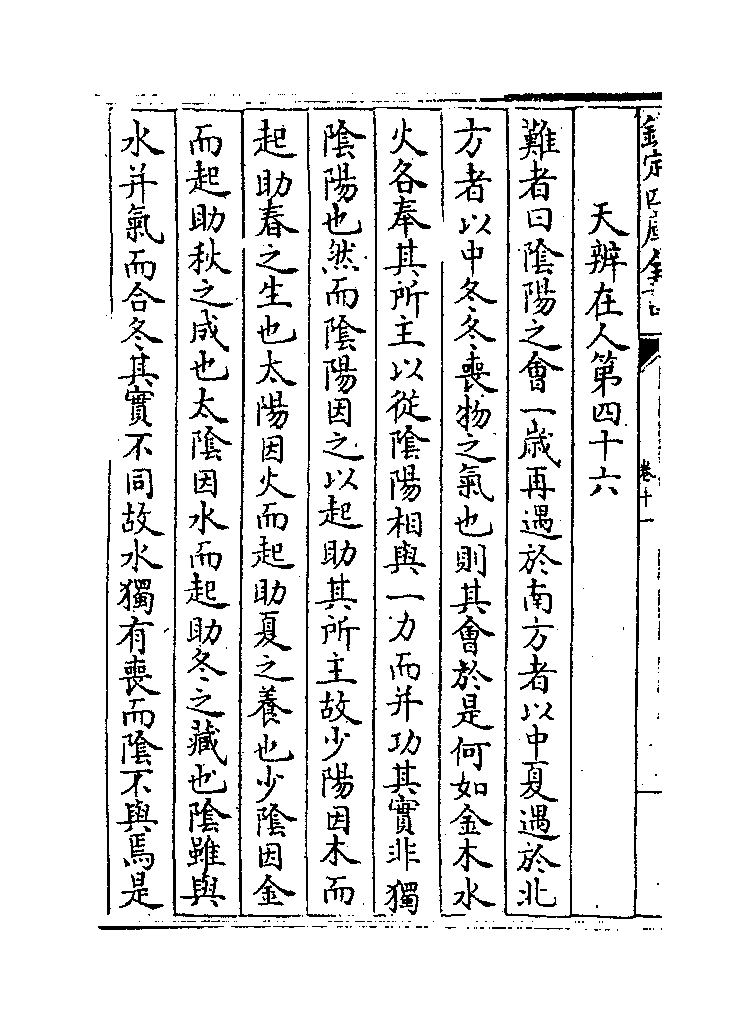 欽定四庫全書
卷十一
天辨在人第四十六
難者曰陰陽之會一歲再遇於南方者以中夏遇於北
方者以中冬冬喪物之氣也則其會於是何如金木水
火各奉其所主以從陰陽相與一力而并功其實非獨
陰陽也然而陰陽因之以起助其所主故少陽因木而
起助春之生也太陽因火而起助夏之養也少陰因金
而起助秋之成也太陰因水而起助冬之藏也陰雖與
水并氣而合冬其實不同故水獨有喪而陰不與焉是